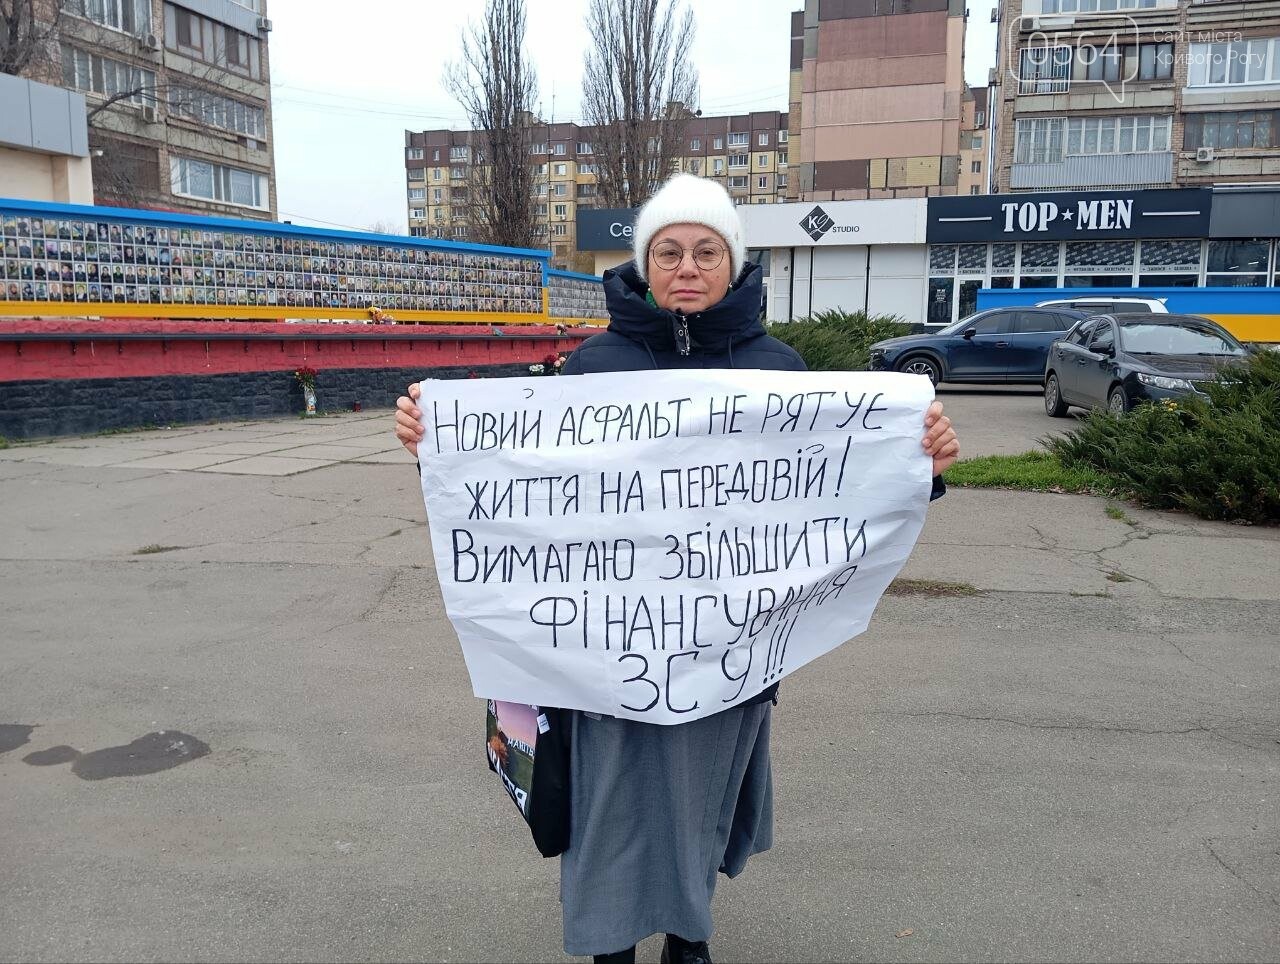 0564
Сайт міста
Кривого Рогу
K9
STUDIO
TOP★MEN
Се
НОВИЙ АСФАЛЬТ НЕ РЯТУЄ
ЖИТТЯ НА ПЕРЕДОВІЙ!
ВИМАГАЮ ЗБІЛЬШИТИ
ФІНАНСУВАННЯ
ЗСУ!!!